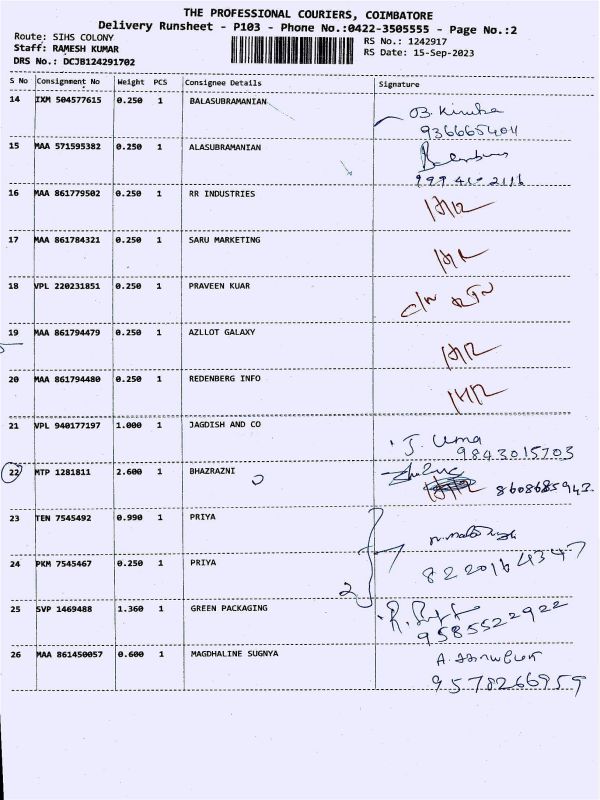 THE PROFESSIONAL COURIERS, COIMBATORE
Delivery Runsheet - P103 - Phone No.:0422-3505555 - Page No.:2
Route: SIHS COLONY
Staff: RAMESH KUMAR
DRS No.: DCJB124291702
RS No.: 1242917
RS Date: 15-Sep-2023
S No Consignment No Weight PCS Consignee Details Signature
14 IXM 504577615 0.250 1 BALASUBRAMANIAN
9366665404
15 MAA 571595382 0.250 1 ALASUBRAMANIAN
16 MAA 861779502 0.250 1 RR INDUSTRIES
17 MAA 861784321 0.250 1 SARU MARKETING
18 VPL 220231851 0.250 1 PRAVEEN KUAR
19 MAA 861794479 0.250 1 AZLLOT GALAXY
20 MAA 861794480 0.250 1 REDENBERG INFO
21 VPL 940177197 1.000 1 JAGDISH AND CO
J. Uma
9843015703
22 MTP 1281811 2.600 1 BHAZRAZNI
8608685943.
23 TEN 7545492 0.990 1 PRIYA
24 PKM 7545467 0.250 1 PRIYA
2
8220164347
25 SVP 1469488 1.360 1 GREEN PACKAGING
9585522922
26 MAA 861450057 0.600 1 MAGDHALINE SUGNYA
9578266959